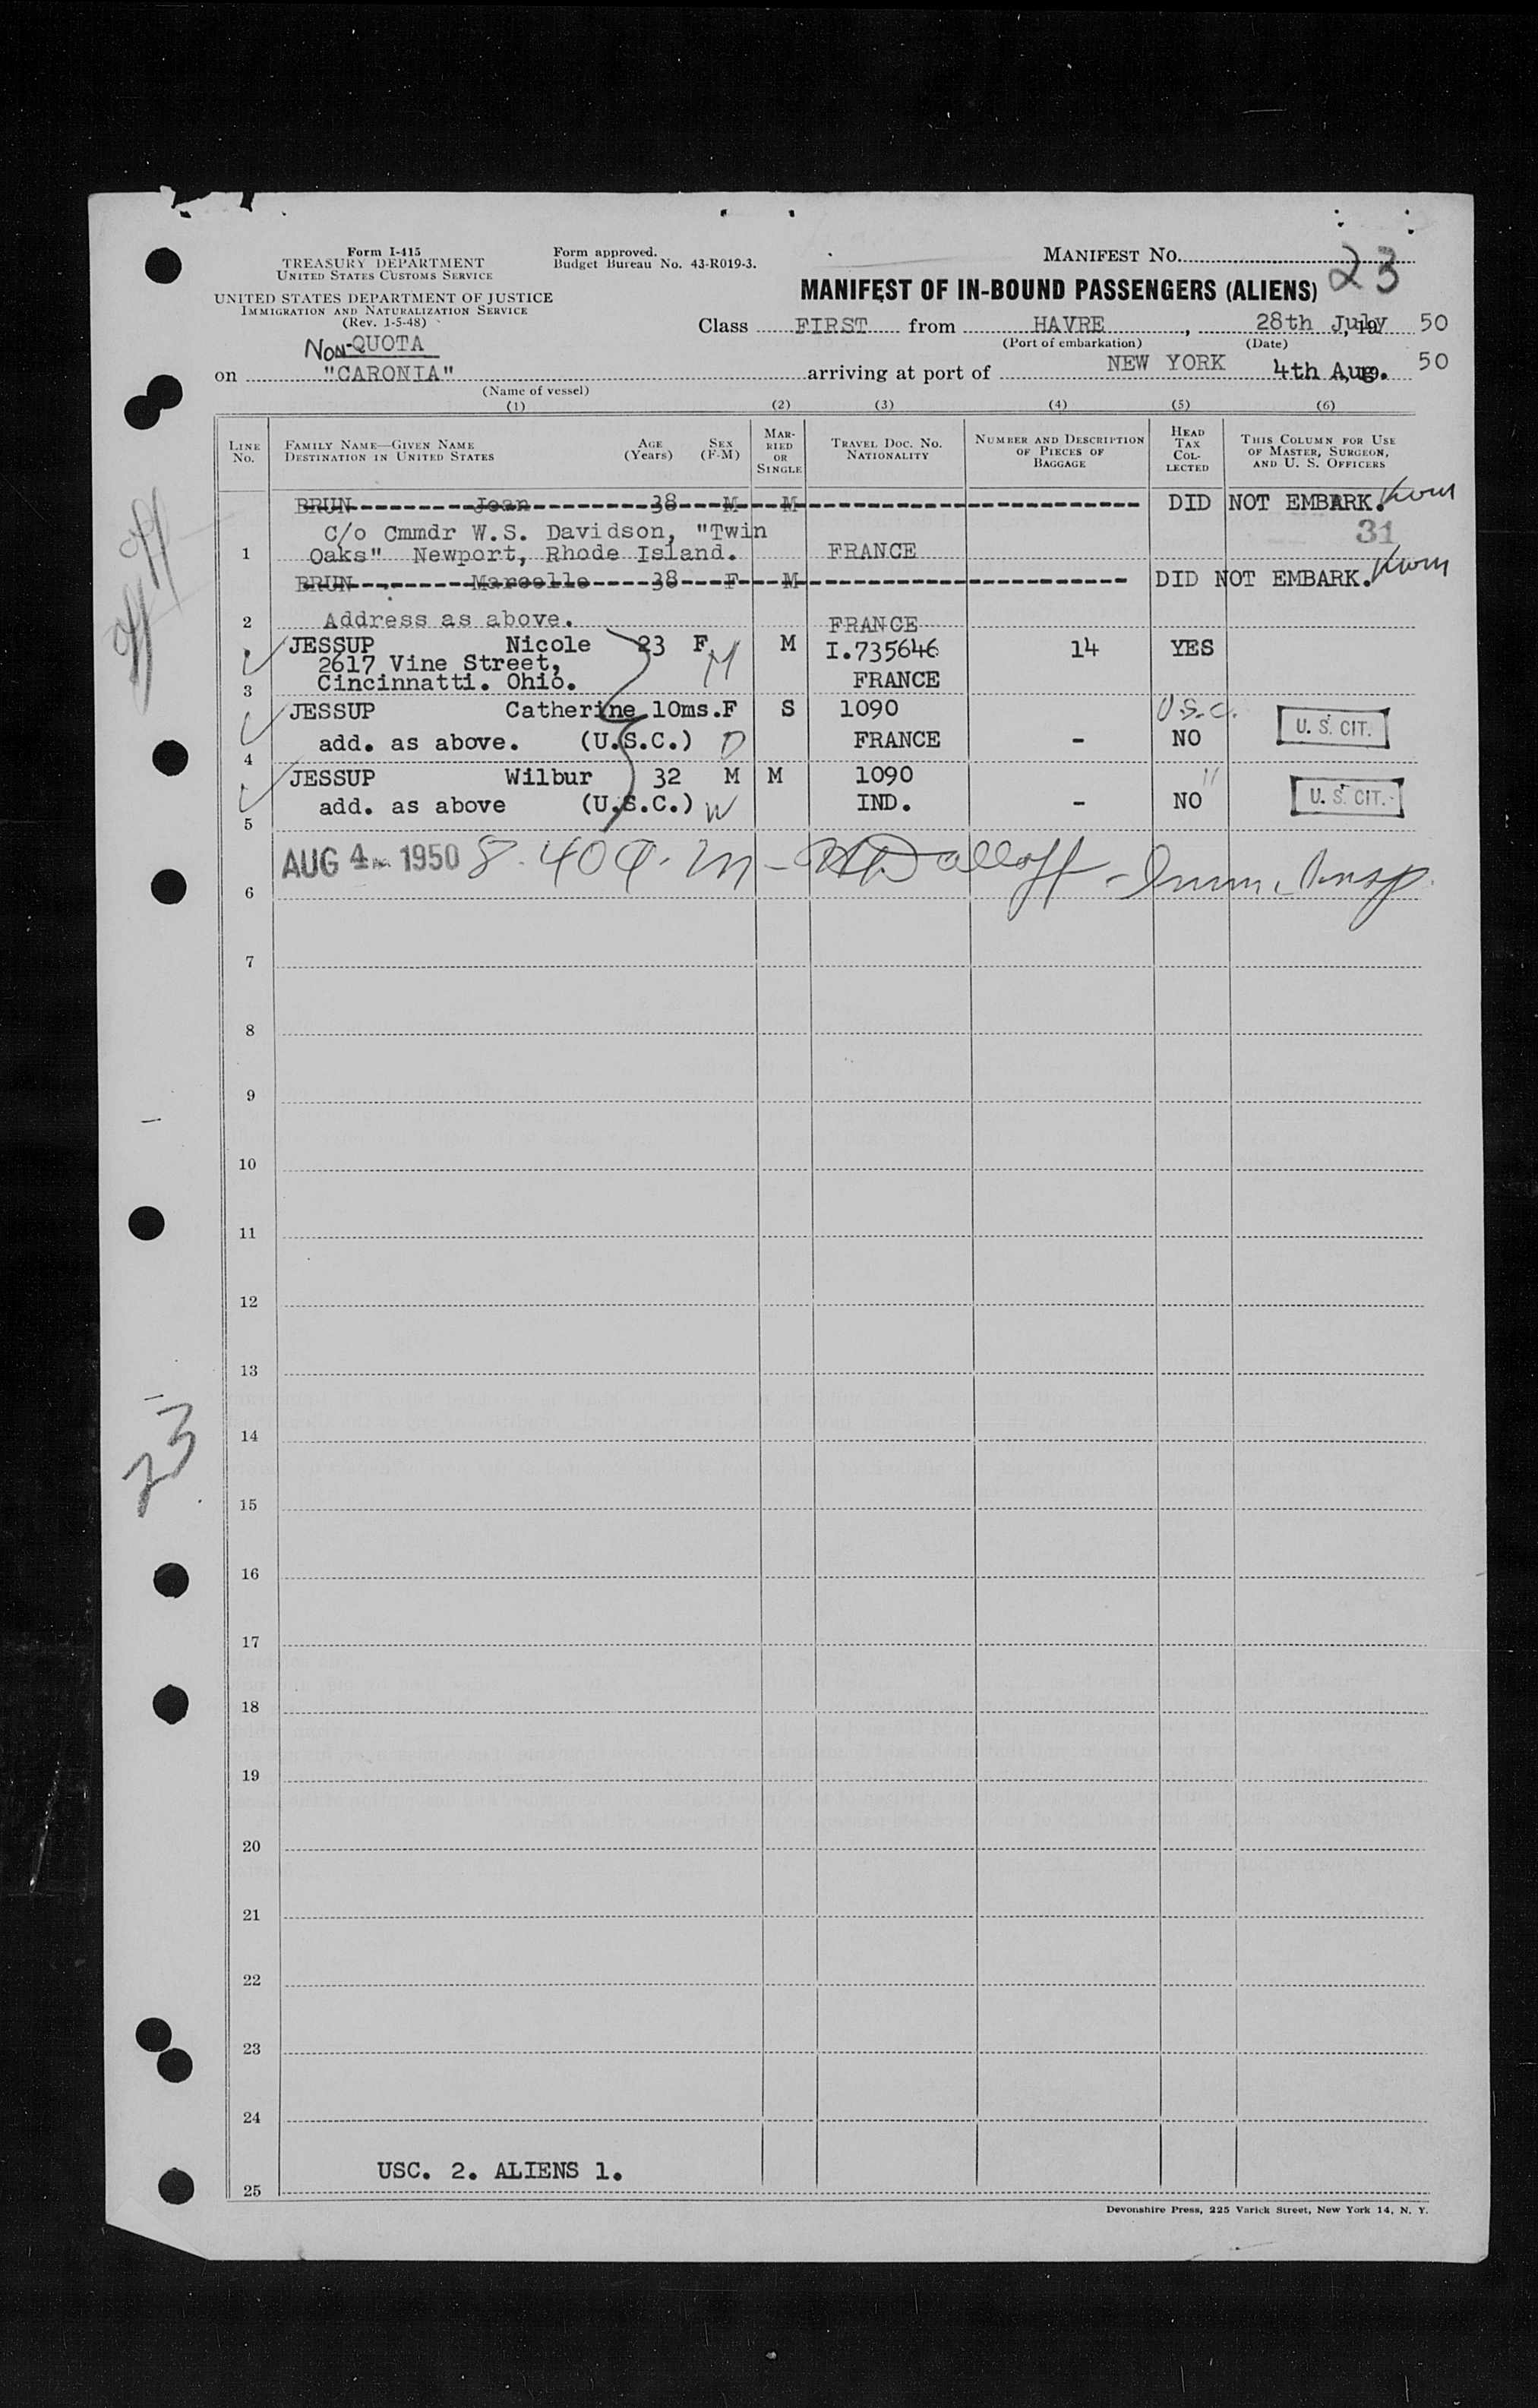 Form I-415
TREASURY DEPARTMENT
UNITED STATES CUSTOMS SERVICE
UNITED STATES DEPARTMENT OF JUSTICE
IMMIGRATION AND NATURALIZATION SERVICE
(Rev. 1-5-48)
Form approved.
Budget Bureau No. 43-R019-3.
MANIFEST NO. 23
MANIFEST OF IN-BOUND PASSENGERS (ALIENS)
Class FIRST from HAVRE, 28th July 50
(Port of embarkation) (Date)
NON-QUOTA
on "CARONIA" arriving at port of NEW YORK 4th Aug. 50
(Name of vessel)
(1) (2) (3) (4) (5) (6)
LINE NO. FAMILY NAME—GIVEN NAME DESTINATION IN UNITED STATES AGE (Years) SEX (F-M) MARRIED OR SINGLE TRAVEL DOC. NO. NATIONALITY NUMBER AND DESCRIPTION OF PIECES OF BAGGAGE HEAD TAX COLLECTED THIS COLUMN FOR USE OF MASTER, SURGEON, AND U. S. OFFICERS
BRUN Jean 38 M M DID NOT EMBARK.
C/o Cmmdr W.S. Davidson, "Twin 31
1 Oaks" Newport, Rhode Island. FRANCE
BRUN Marcelle 38 F M DID NOT EMBARK.
2 Address as above. FRANCE
JESSUP Nicole 23 F M I.735646 14 YES
2617 Vine Street, M
3 Cincinnatti. Ohio. FRANCE
JESSUP Catherine 10ms. F S 1090 U.S.C.
4 add. as above. (U.S.C.) D FRANCE - NO U. S. CIT.
JESSUP Wilbur 32 M M 1090 "
5 add. as above (U.S.C.) W IND. - NO U. S. CIT.
AUG 4 1950 8.40 a.m - Imm. Insp.
6
7
8
9
10
11
12
13
23
14
15
16
17
18
19
20
21
22
23
24
USC. 2. ALIENS 1.
25
Devonshire Press, 225 Varick Street, New York 14, N. Y.